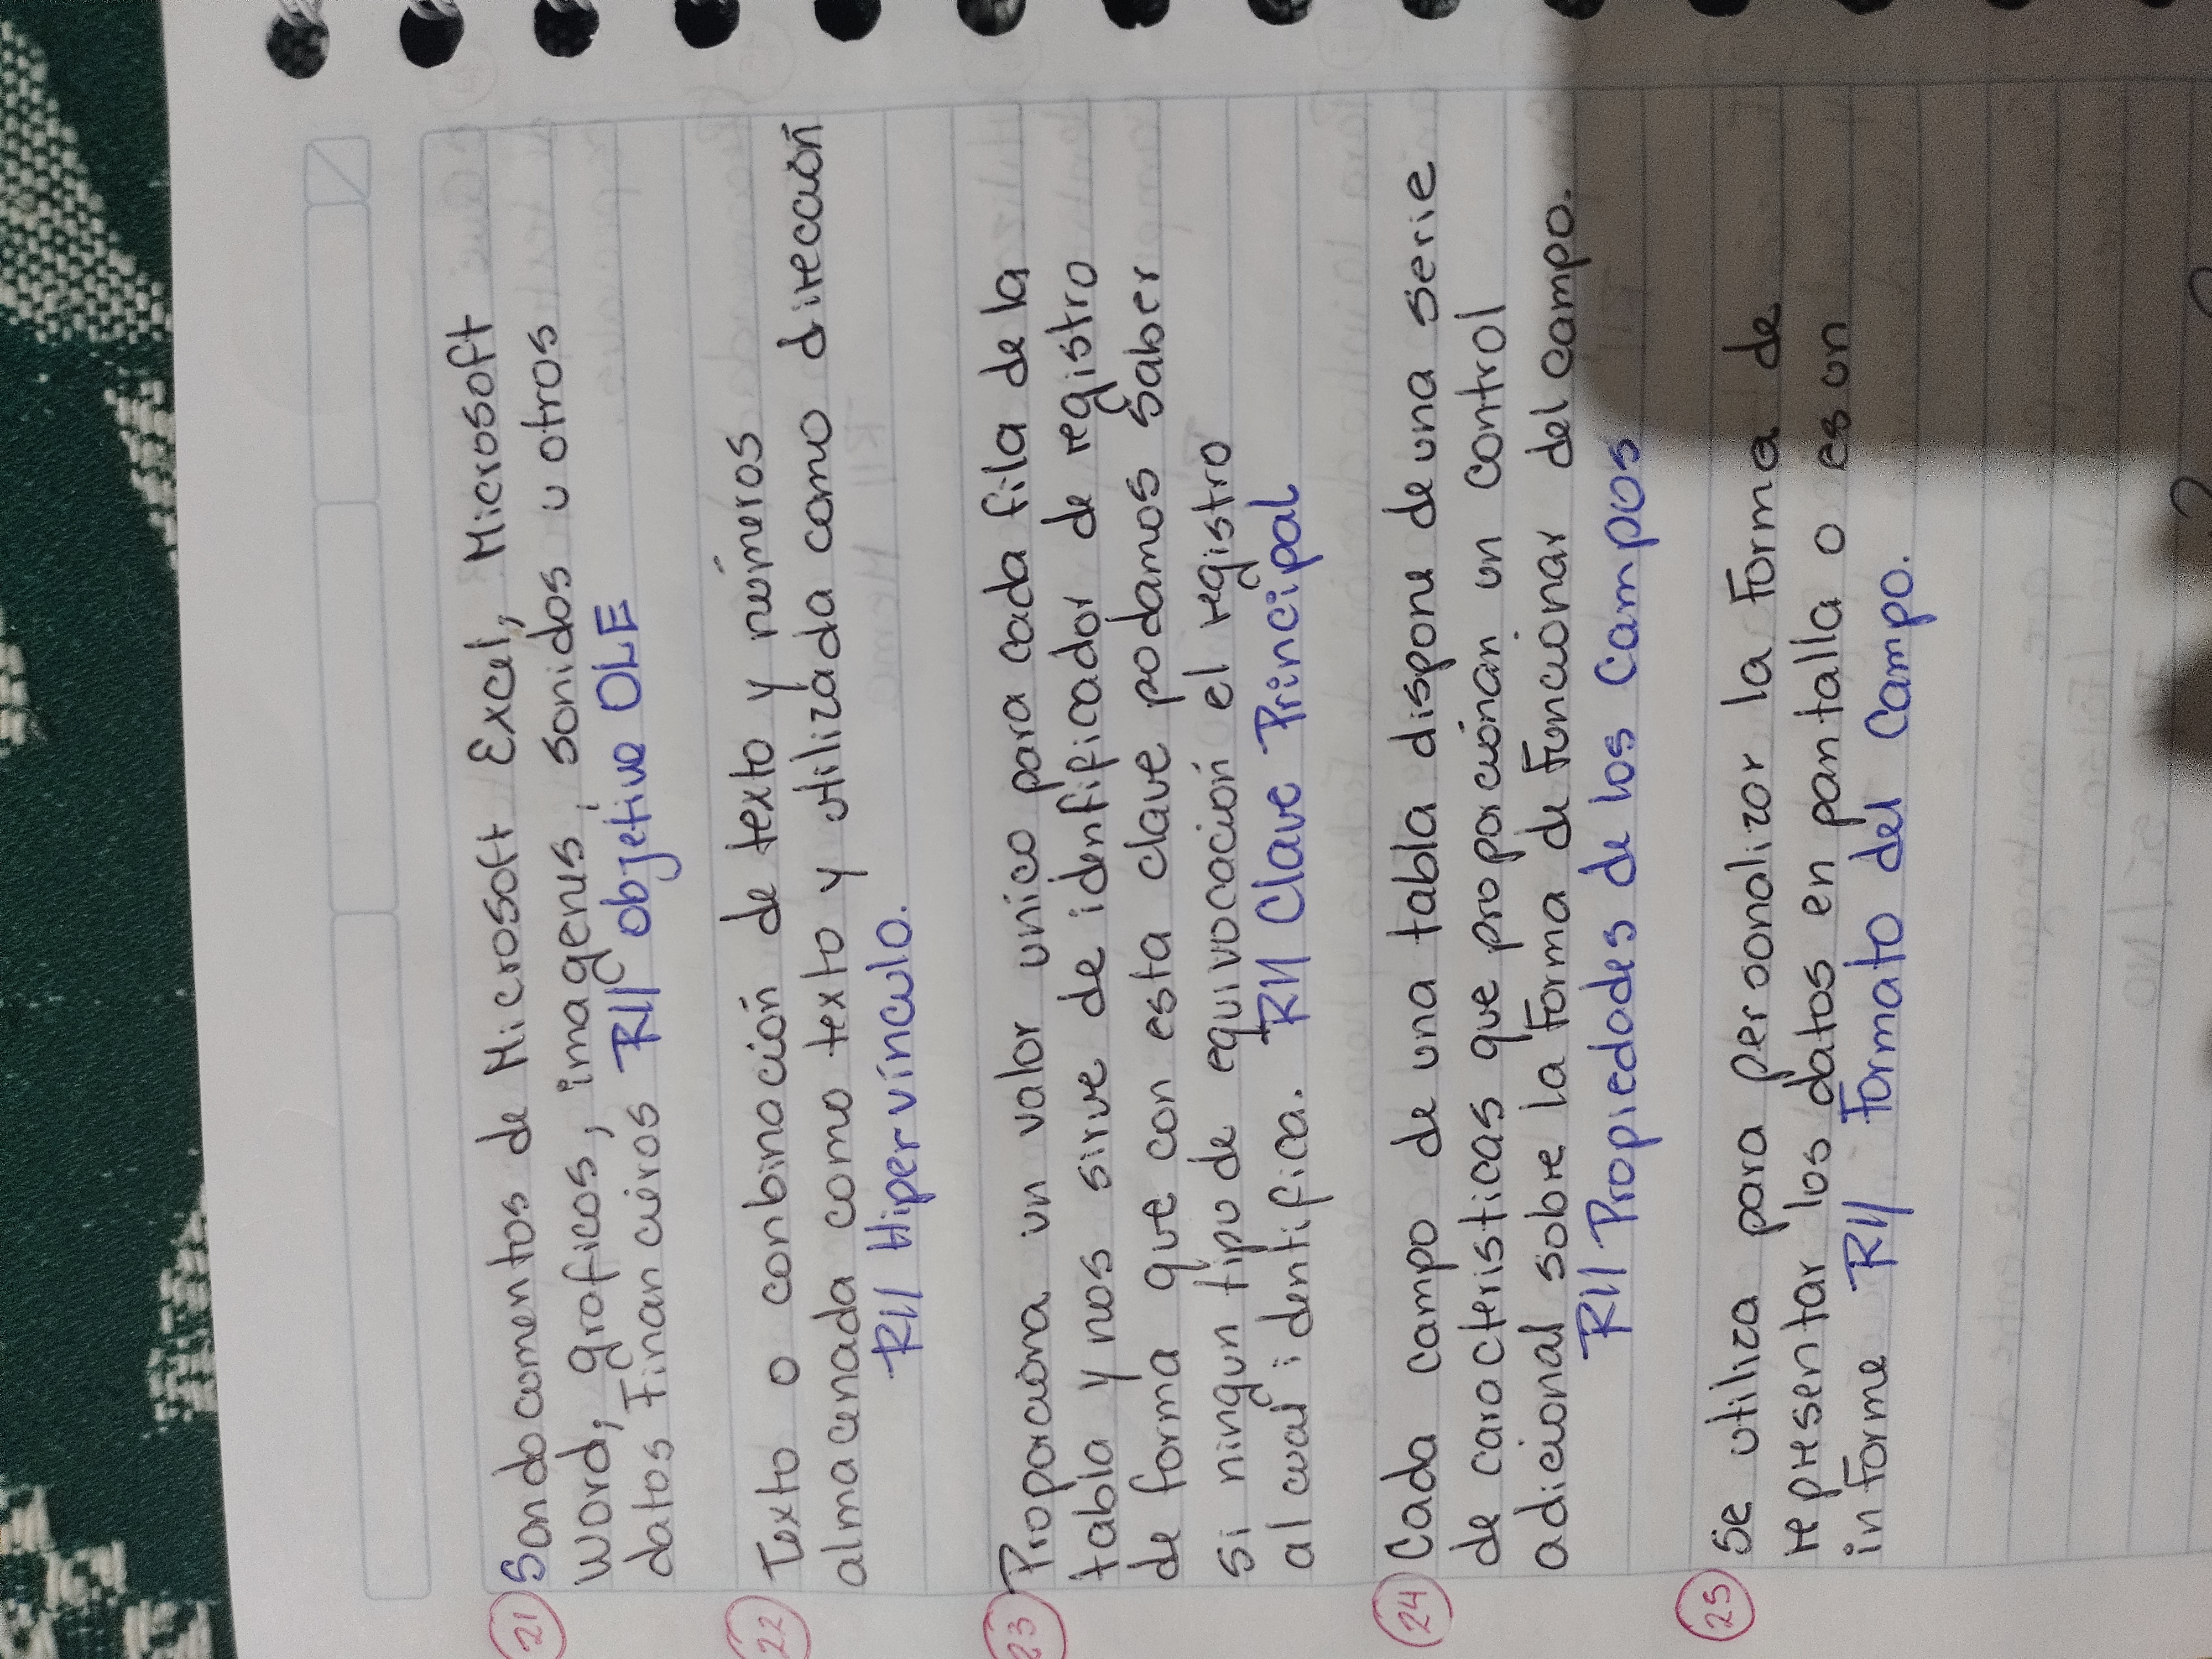 21 Son documentos de Microsoft Excel, Microsoft
Word, graficos, imagenes, sonidos u otros
datos Financieros R// objetivo OLE
22 Texto o conbinación de texto y números
almacenada como texto y utilizada como dirección
R// Hipervínculo.
23 Proporciona un valor unico para cada fila de la
tabla y nos sirve de identificador de registro
de forma que con esta clave podamos saber
si ningun tipo de equivocación el registro
al cual identifica. R// Clave Principal
24 Cada campo de una tabla dispone de una serie
de caracteristicas que proporcionan un control
adicional sobre la Forma de Funcionar del campo.
R// Propiedades de los Campos
25 Se utiliza para personalizar la Forma de
representar los datos en pantalla o es un
informe R// Formato del Campo.